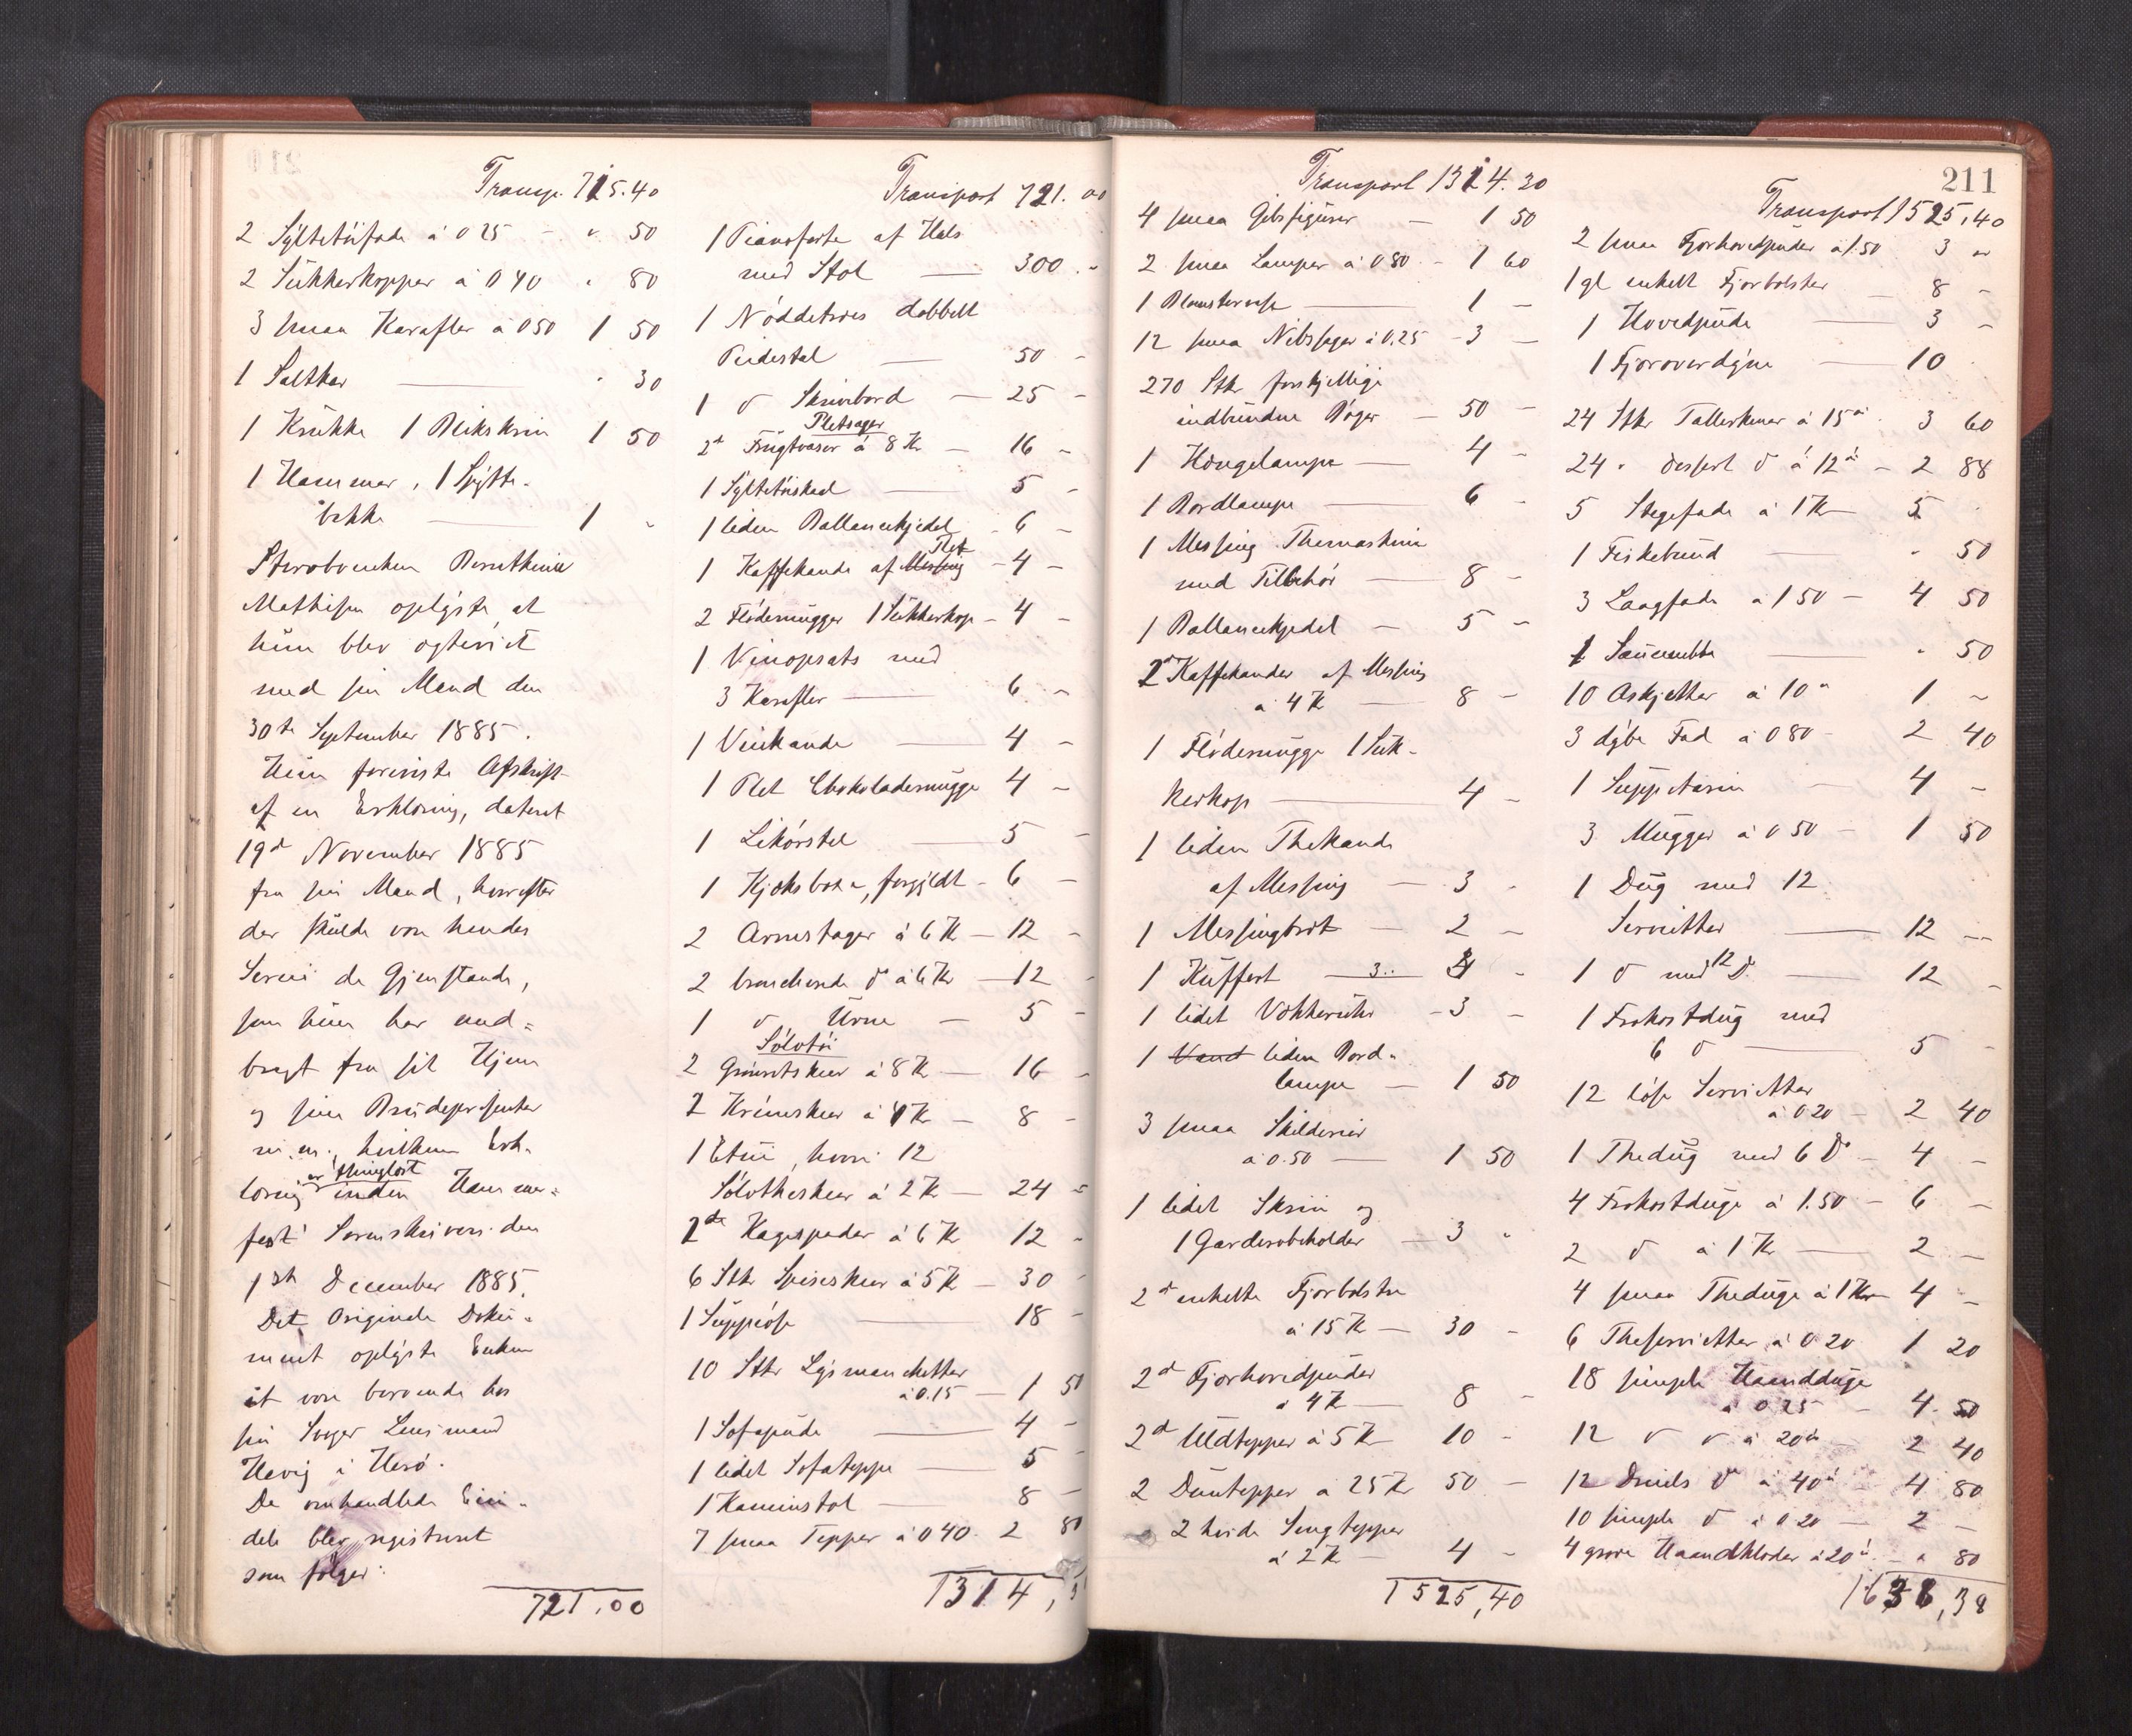 Transp. 715.40
2 Syltetöifade à 0 25 - " 50
2 Sukkerkopper à 0 40 " 80
3 smaa Karafler à 0 50 1 50
1 Saltkar " 30
1 Krukke 1 Blikskrin 1 50
1 Hammer, 1 Spytte-
bakke 1 -
Sterboenken Bernthine
Mathisen oplyste, at
hun blev ægteviet
med sin Mand den
30te September 1885.
Hun foreviste Afskrift
af en Erklæring, dateret
19d November 1885
fra sin Mand, hvorefter
der skulde være hendes
Særeie de Gjenstande,
som hun har med-
bragt fra sit Hjem
og sine Brudepresenter
m. m., hvilken Erk-
læring er thinglæst inden Hammer-
fest Sorenskriveri den
1ste December 1885.
Det originale Doku-
ment oplyste Enken
at være beroende hos
sin Svoger Lensmand
Havig i Herö.
De omhandlede Ein-
dele blev registreret
som følger:
721.00
Transport 721. 00
1 Pianoforte af Hals
med Stol 300. -
1 Nöddetræes dobbelt
Pidestal 50 -
1 d Skrivebord - 25 -
Pletsager
2d Frugtvaser à 8 Kr - 16 -
1 Syltetöiskaal 5 -
1 liden Ballancekjedel - 6 -
1 Kaffekande af Messing Plet - 4 -
2 Flödemugger 1 Sukkerkop - 4 -
1 Vinopsats med
3 Karafler 6 -
1 Vinkande 4 -
1 Plet Chokolademugge 4 -
1 Likörstel 5 -
1 Kjeksboxe, forgyldt - 6 -
2 Armstager à 6 Kr - 12 -
2 broncherede do à 6 Kr - 12 -
1 d Urne - 5 -
Sölvtöi
2 Grönsatskeer à 8 Kr - 16 -
2 Krämskeer à 4 Kr - 8 -
1 Etui, hvori 12
Sölvtheskeer à 2 Kr - 24 -
2de Kagespader à 6 Kr 12 -
6 Stkr Spiseskeer à 5 Kr - 30 -
1 Suppeöse 18 -
10 Stkr Lysmanchetter
à 0.15 - 1 50
1 Sofapude 4 -
1 lidet Sofateppe 5 -
1 Kaminstol 8 -
7 smaa Tepper à 0 40. 2 80
1314,3
Transport 1314. 30
4 smaa Gibsfigurer - 1 50
2 smaa Lamper à 0 80 - 1 60
1 Blomstervase 1 -
12 smaa Nibssager à 0.25 - 3 -
270 Stkr forskjellige
indbundne Böger - 50 -
1 Hængelampe 4 -
1 Bordlampe 6 -
1 Messing Themaskine
med Tilbehör 8 -
1 Ballancekjedel - 5 -
2d Kaffekander af Messing
à 4 Kr 8 -
1 Flödemugge 1 Suk-
kerkop 4 -
1 liden Thekande
af Messing - 3 -
1 Messingbret 2 -
1 Kuffert 3.. 4 -
1 lidet Vækkeruhr - 3 -
1 Vand liden Bord-
lampe - 1 50
3 smaa Skilderier
à 0.50 1 50
1 lidet Skrin og
1 Garderobeholder - 3 -
2d enkelte Fjærbolstre
à 15 Kr - 30 -
2d Fjærhovedpuder
à 4 Kr 8 -
2d Uldtepper à 5 Kr 10 -
2 Duntepper à 25 Kr 50 -
2 hvide Sengtepper
à 2 Kr - 4 -
1525,40
211
Transport 1525,40
2 smaa Fjærhovedpuder à 1.50 3 "
1 gl enkelt Fjærbolster - 8 -
1 Hovedpude 3 -
1 Fjæroverdyne 10 -
24 Stkr Tallerkener à 15ö 3 60
24 " dessert d à 12ö - 2 88
5 Stegefade à 1 Kr 5 -
1 Fiskebund " 50
3 Laagfade à 1 50 - 4 50
1 Saucenebbe " 50
10 Askjetter à 10ö 1 -
3 dybe Fad à 0 80 - 2 40
1 Suppeterin 4 -
3 Mugger à 0 50 - 1 50
1 Dug med 12
Servietter 12 -
1 d med 12 D 12 -
1 Frokostdug med
6 d 5 -
12 löse Servietter
à 0 20 - 2 40
1 Thedug med 6 do - 4 -
4 Frokostduge à 1.50 - 6 -
2 d à 1 Kr 2 -
4 smaa Theduge à 1 Kr 4 -
6 Theservietter à 0 20 1 20
18 simple Haandduge
à 0 25 - 4. 50
12 d d à 20ö 2 40
12 Dreils do à 40ö 4 80
10 simple d à 0 20 - 2 -
4 grove Haandklæder à 20ö - " 80
1638,38